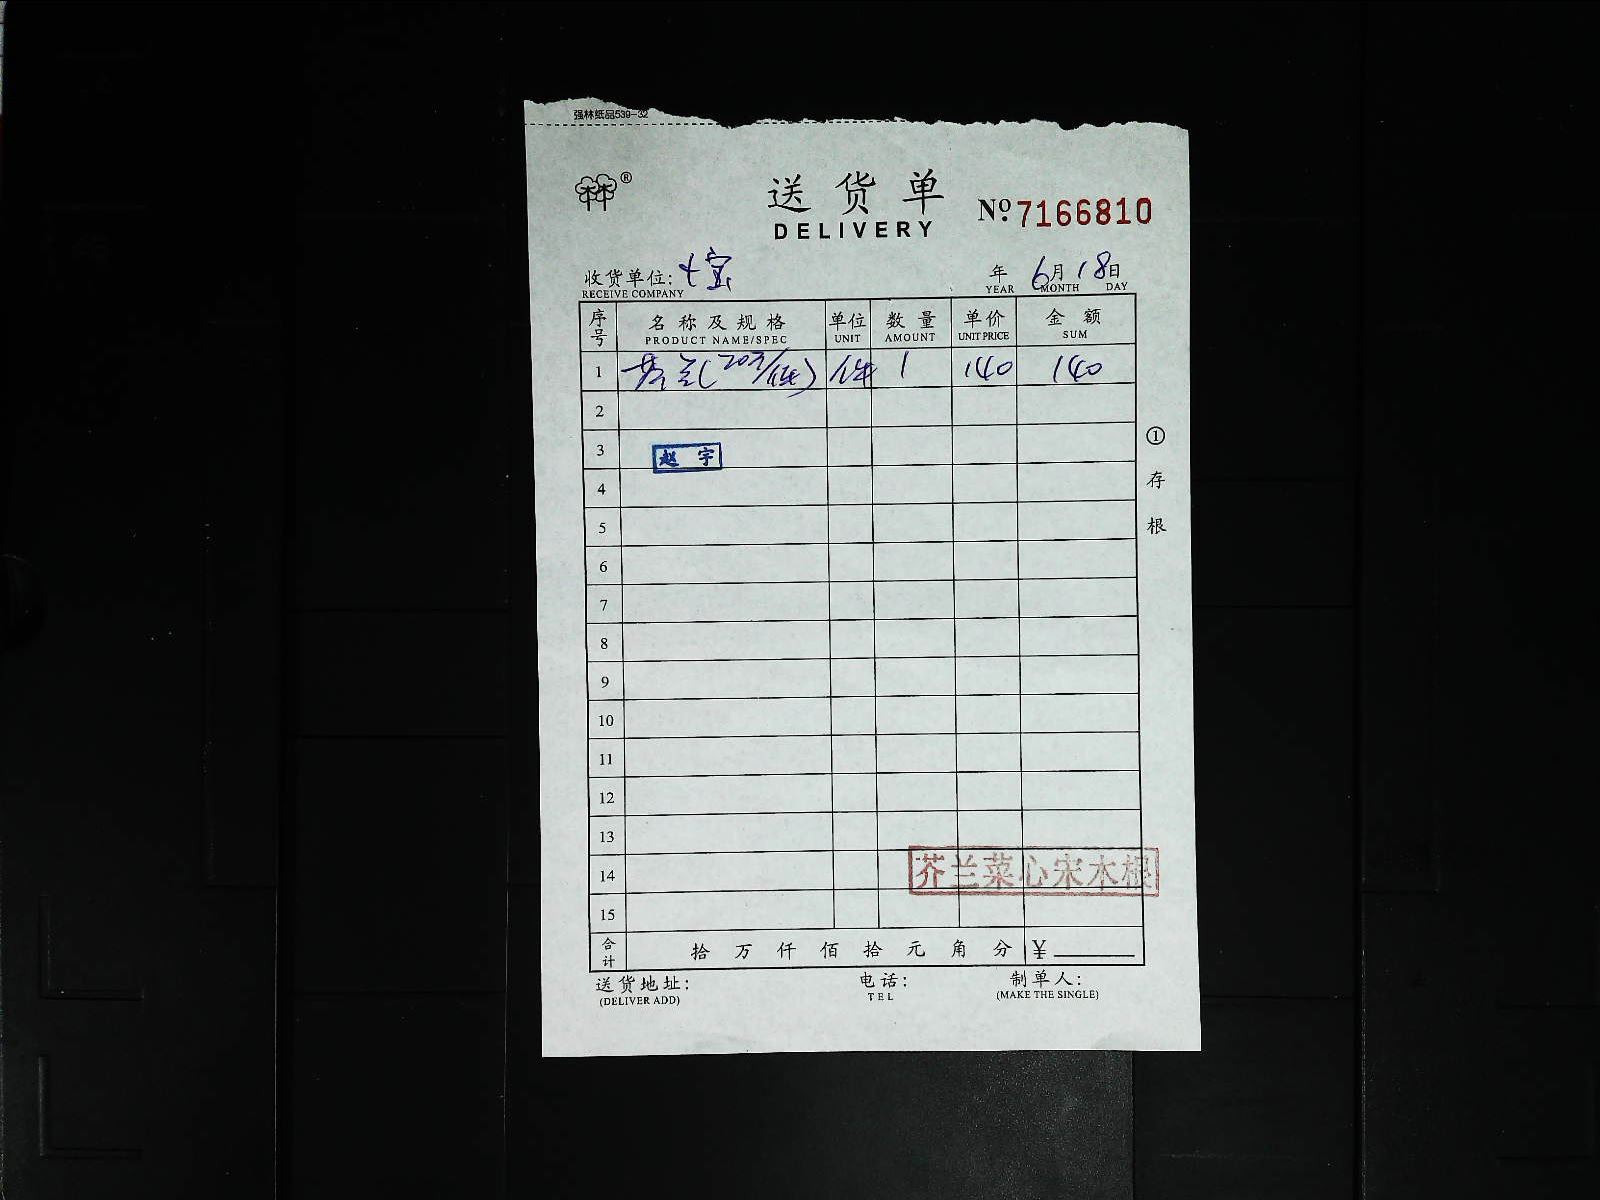 强林纸品539-32
林 ®
送货单
DELIVERY
Nº 7166810
收货单位: 七宝
RECEIVE COMPANY
年 6月18日
YEAR MONTH DAY
序号 名称及规格 单位 数量 单价 金额
PRODUCT NAME/SPEC UNIT AMOUNT UNIT PRICE SUM
1 芥兰(20斤/件) 件 1 140 140
2
3 赵宇
4
5
6
7
8
9
10
11
12
13
14 芥兰菜心宋木根
15
合计 拾 万 仟 佰 拾 元 角 分 ¥
送货地址: 电话: 制单人:
(DELIVER ADD) TEL (MAKE THE SINGLE)
①存根